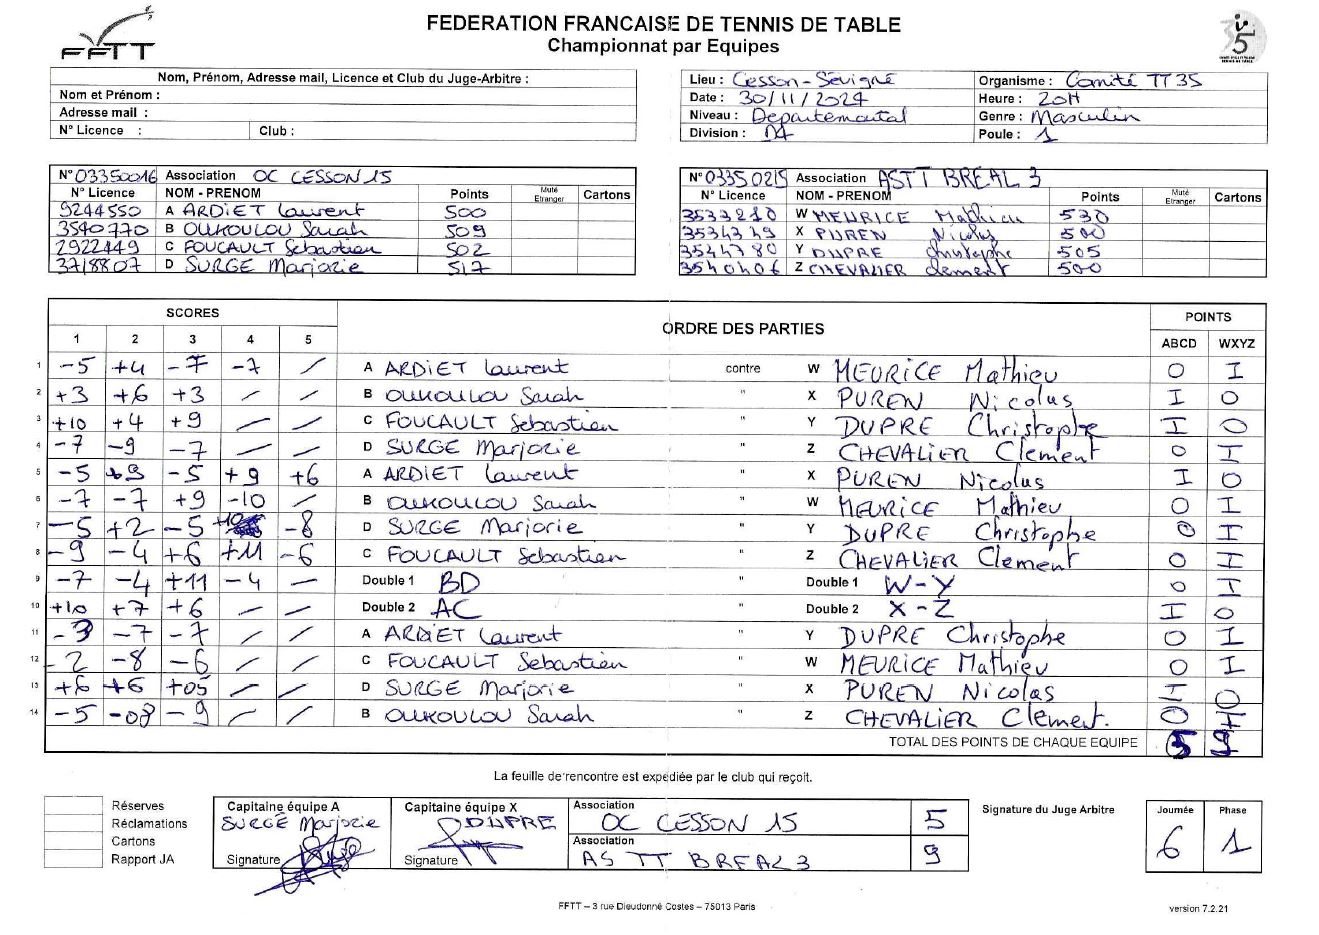 FFTT
FEDERATION FRANCAISE DE TENNIS DE TABLE
Championnat par Equipes
Nom, Prénom, Adresse mail, Licence et Club du Juge-Arbitre :
Nom et Prénom :
Adresse mail :
N° Licence : Club :
Lieu : Cesson-Sévigné Organisme : Comité TT35
Date : 30/11/2024 Heure : 20H
Niveau : Départemental Genre : Masculin
Division : D4 Poule : 1
N° 03350016 Association OC CESSON 15
N° Licence NOM - PRENOM Points Muté Etranger Cartons
9244550 A ARDIET Laurent 500
3540770 B OUKOULOU Sarah 509
2922449 C FOUCAULT Sébastien 502
3718807 D SURGE Marjorie 517
N° 03350215 Association ASTT BREAL 3
N° Licence NOM - PRENOM Points Muté Etranger Cartons
3533210 W MEURICE Mathieu 530
3534349 X PUREN Nicolas 500
3544780 Y DUPRE christophe 505
3540406 Z CHEVALIER clement 500
SCORES ORDRE DES PARTIES POINTS
1 2 3 4 5 ABCD WXYZ
1 -5 +4 -7 -7 / A ARDIET Laurent contre W MEURICE Mathieu 0 I
2 +3 +6 +3 / / B OUKOULOU Sarah " X PUREN Nicolas I 0
3 +10 +4 +9 / / C FOUCAULT Sebastien " Y DUPRE Christophe I 0
4 -7 -9 -7 / / D SURGE Marjorie " Z CHEVALIER Clement 0 I
5 -5 +9 -5 +9 +6 A ARDIET Laurent " X PUREN Nicolas I 0
6 -7 -7 +9 -10 / B OUKOULOU Sarah " W MEURICE Mathieu 0 I
7 -5 +2 -5 +10 -8 D SURGE Marjorie " Y DUPRE Christophe 0 I
8 -9 -4 +6 +11 -6 C FOUCAULT Sebastien " Z CHEVALIER Clement 0 I
9 -7 -4 +11 -4 / Double 1 BD " Double 1 W-Y 0 I
10 +10 +7 +6 / / Double 2 AC " Double 2 X-Z I 0
11 -3 -7 -7 / / A ARDIET Laurent " Y DUPRE Christophe 0 I
12 -2 -8 -6 / / C FOUCAULT Sebastien " W MEURICE Mathieu 0 I
13 +6 +6 +05 / / D SURGE Marjorie " X PUREN Nicolas I 0
14 -5 -08 -9 / / B OUKOULOU Sarah " Z CHEVALIER Clement. 0 I
TOTAL DES POINTS DE CHAQUE EQUIPE 5 9
La feuille de rencontre est expédiée par le club qui reçoit.
Réserves
Réclamations
Cartons
Rapport JA
Capitaine équipe A
SURGE Marjorie
Signature
Capitaine équipe X
DUPRE
Signature
Association
OC CESSON 15 5
Association
AS TT BREAL 3 9
Signature du Juge Arbitre
Journée Phase
6 1
FFTT – 3 rue Dieudonné Costes – 75013 Paris
version 7.2.21